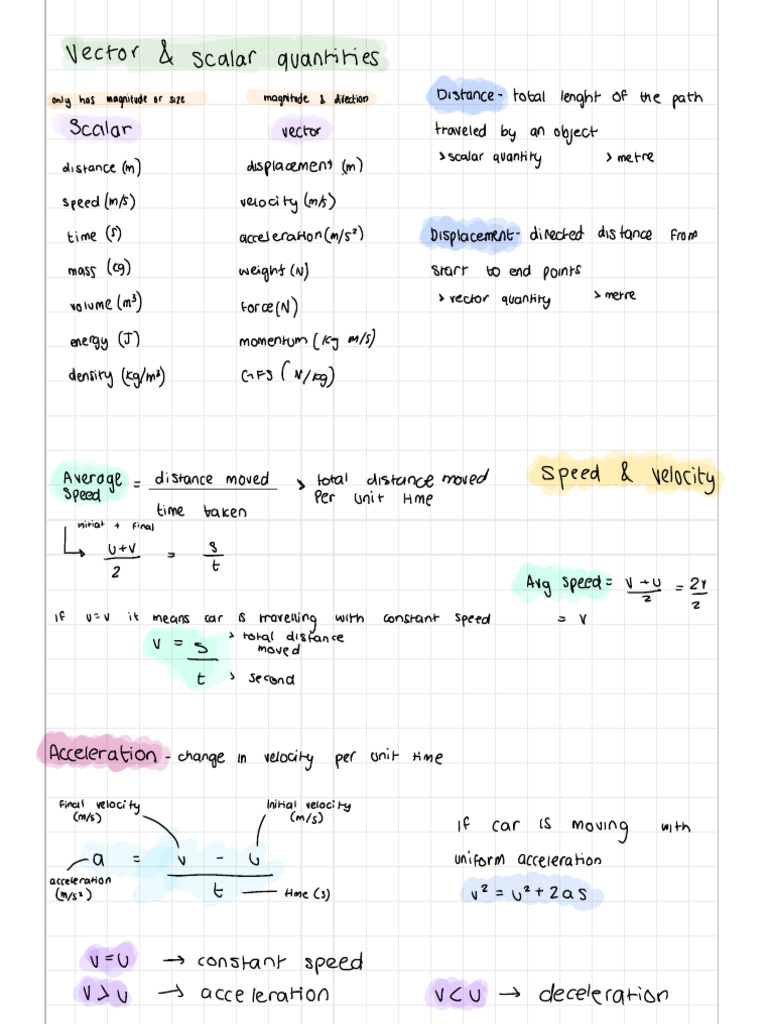 Vector & scalar quantities
only has magnitude or size
magnitude & direction
Scalar
vector
distance (m)
displacement (m)
speed (m/s)
velocity (m/s)
time (s)
acceleration (m/s²)
mass (kg)
weight (N)
volume (m³)
force (N)
energy (J)
momentum (kg m/s)
density (kg/m³)
GFS (N/kg)
Distance - total lenght of the path
traveled by an object
> scalar quantity > metre
Displacement - directed distance from
start to end points
> vector quantity > metre
Speed & velocity
Average Speed = distance moved / time taken > total distance moved
Per unit time
initial + final
u+v / 2 = s / t
Avg speed = v+u / 2 = 2v / 2
= v
if u=v it means car is travelling with constant speed
v = s / t
> total distance moved
> second
Acceleration - change in velocity per unit time
final velocity (m/s)
initial velocity (m/s)
a = v - u / t
acceleration (m/s²)
time (s)
if car is moving with
uniform acceleration
v² = u² + 2as
v=u → constant speed
v>u → acceleration
v<u → deceleration